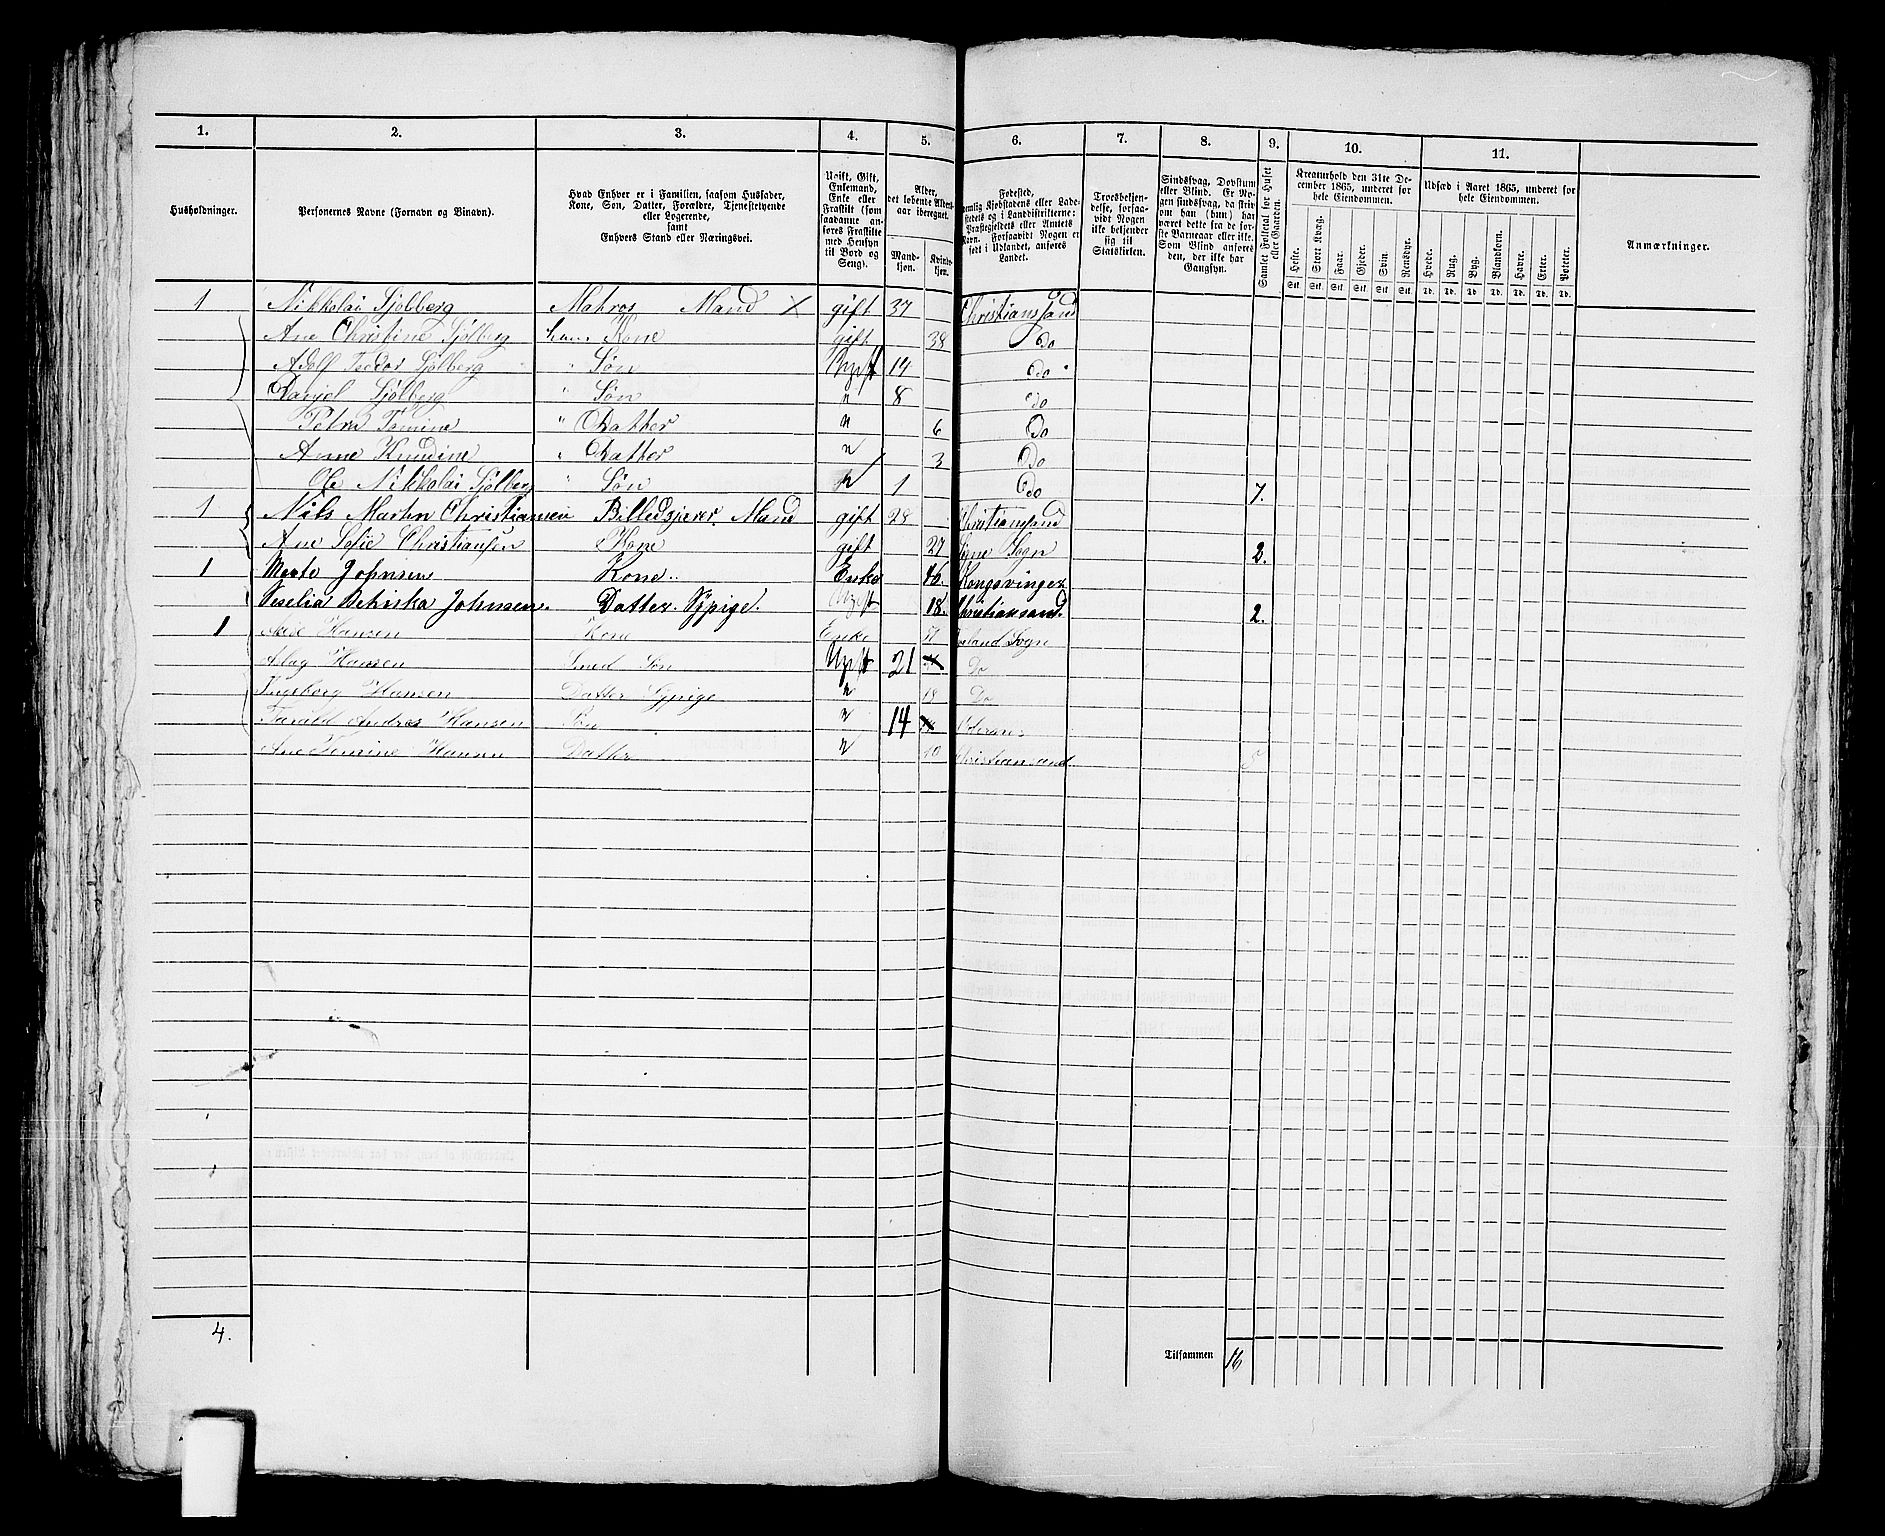 1. 2. 3. 4. 5. 6. 7. 8. 9. 10. 11.
Husholdninger.
Personernes Navne (Fornavn og Binavn).
Hvad Enhver er i Familien, saasom Husfader,
Kone, Søn, Datter, Forældre, Tjenestetyende
eller Logerende,
samt
Enhvers Stand eller Næringsvei.
Ugift, Gift,
Enkemand,
Enke eller
Fraskilt (som
saadanne anføres Fraskilte
med Hensyn
til Bord og
Seng).
Alder,
det løbende Aldersaar iberegnet.
Mandkjøn. Kvindekjøn.
Fødested,
Landet.
Troesbekjendelse, forsaavidt Nogen
ikke bekjender
sig til
Statskirken.
Sindssvag, Døvstum
eller Blind. Er Nogen sindssvag, da skrives om han (hun) har
været dette fra de første Barneaar eller ikke.
Som Blind anføres
den, der ikke har
Gangsyn.
Samlet Folketal for Huset
eller Gaarden.
Kreaturhold den 31te December 1865, underet for
hele Eiendommen.
Heste. Stort Kvæg. Faar. Gjeder. Svin. Rensdyr.
Stk. Stk. Stk. Stk. Stk. Stk.
Udsæd i Aaret 1865, underet for
hele Eiendommen.
Hvede. Rug. Byg. Blandkorn. Havre. Erter. Poteter.
Td. Td. Td. Td. Td. Td. Td.
Anmærkninger.
1 Nikkolai Sjølberg Matros Mand X gift 37 Christianssand
Ane Christine Sjølberg hans Kone gift 38 Do
Adolf Teodor Sjølberg " Søn Ugift 14 Do
Daniel Sjølberg " Søn " 8 Do
Petra Tomine " Datter " 6 Do
Anne Knudine " Datter " 3 Do
Ole Nikkolai Sjølberg " Søn " 1 Do 7.
1 Nils Martin Christiansen Billedsjærer Mand gift 28 Christiansand
Ane Sofie Christiansen Kone gift 27 Sogn 2.
1 Johnsen Kone Enke 46. Kongsvinger
Johnsen. Datter. Sypige. Ugift 18. Christiansand. 2.
1 Hansen Kone Enke Sogn
Hansen Smed Søn Ugift 21 Do
Ingeborg Hansen Datter Sypige " 18 Do
Andreas Hansen Søn " 14
Ane Tomine Hansen Datter " 10 Christiansand. 5
4.
Tilsammen 16